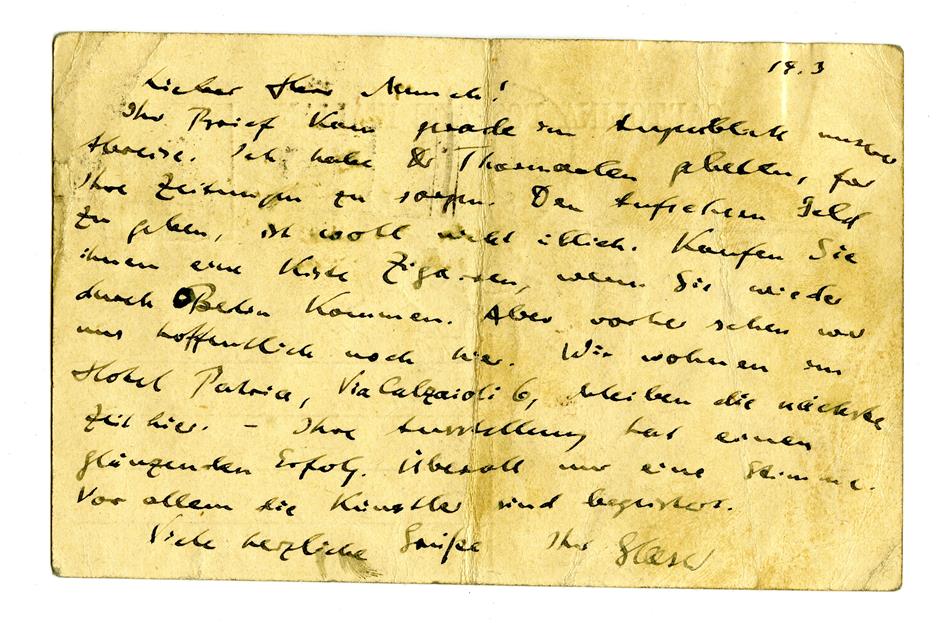 19.3
Lieber Herr Munch!
Ihr Brief kam gerade im Augenblick unserer
Abreise. Ich habe Dr Thormaelen gebeten, für
Ihre Zeitungen zu sorgen. Den Aufsehern Geld
zu geben, ist wohl nicht üblich. Kaufen Sie
ihnen eine Kiste Zigarren, wenn Sie wieder
durch Berlin kommen. Aber vorher sehen wir
uns hoffentlich noch hier. Wir wohnen im
Hotel Patria, Via Calzaioli 6, bleiben die nächste
Zeit hier. – Ihre Ausstellung hat einen
glänzenden Erfolg. Überall nur eine Stimme.
Vor allem die Künstler sind begeistert.
Viele herzliche Grüße Ihr Glaser